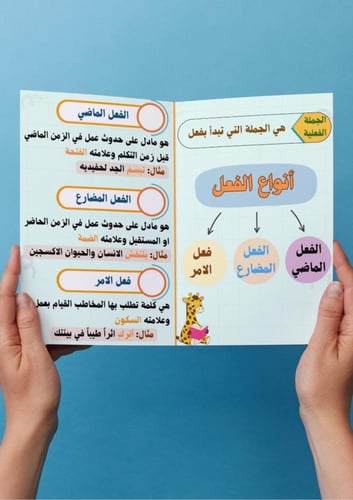 الجملة
الفعلية
هي الجملة التي تبدأ بفعل
أنواع الفعل
الفعل
الماضي
الفعل
المضارع
فعل
الامر
الفعل الماضي
هو مادل على حدوث عمل في الزمن الماضي
قبل زمن التكلم وعلامته الفتحة
مثال: يبتسم الجد لحفيديه
الفعل المضارع
هو مادل على حدوث عمل في الزمن الحاضر
او المستقبل وعلامته الضمة
مثال: يتنفس الانسان والحيوان الاكسجين
فعل الامر
هي كلمة تطلب بها المخاطب القيام بعمل
وعلامته السكون
مثال: أترك اثراً طيباً في بيئتك